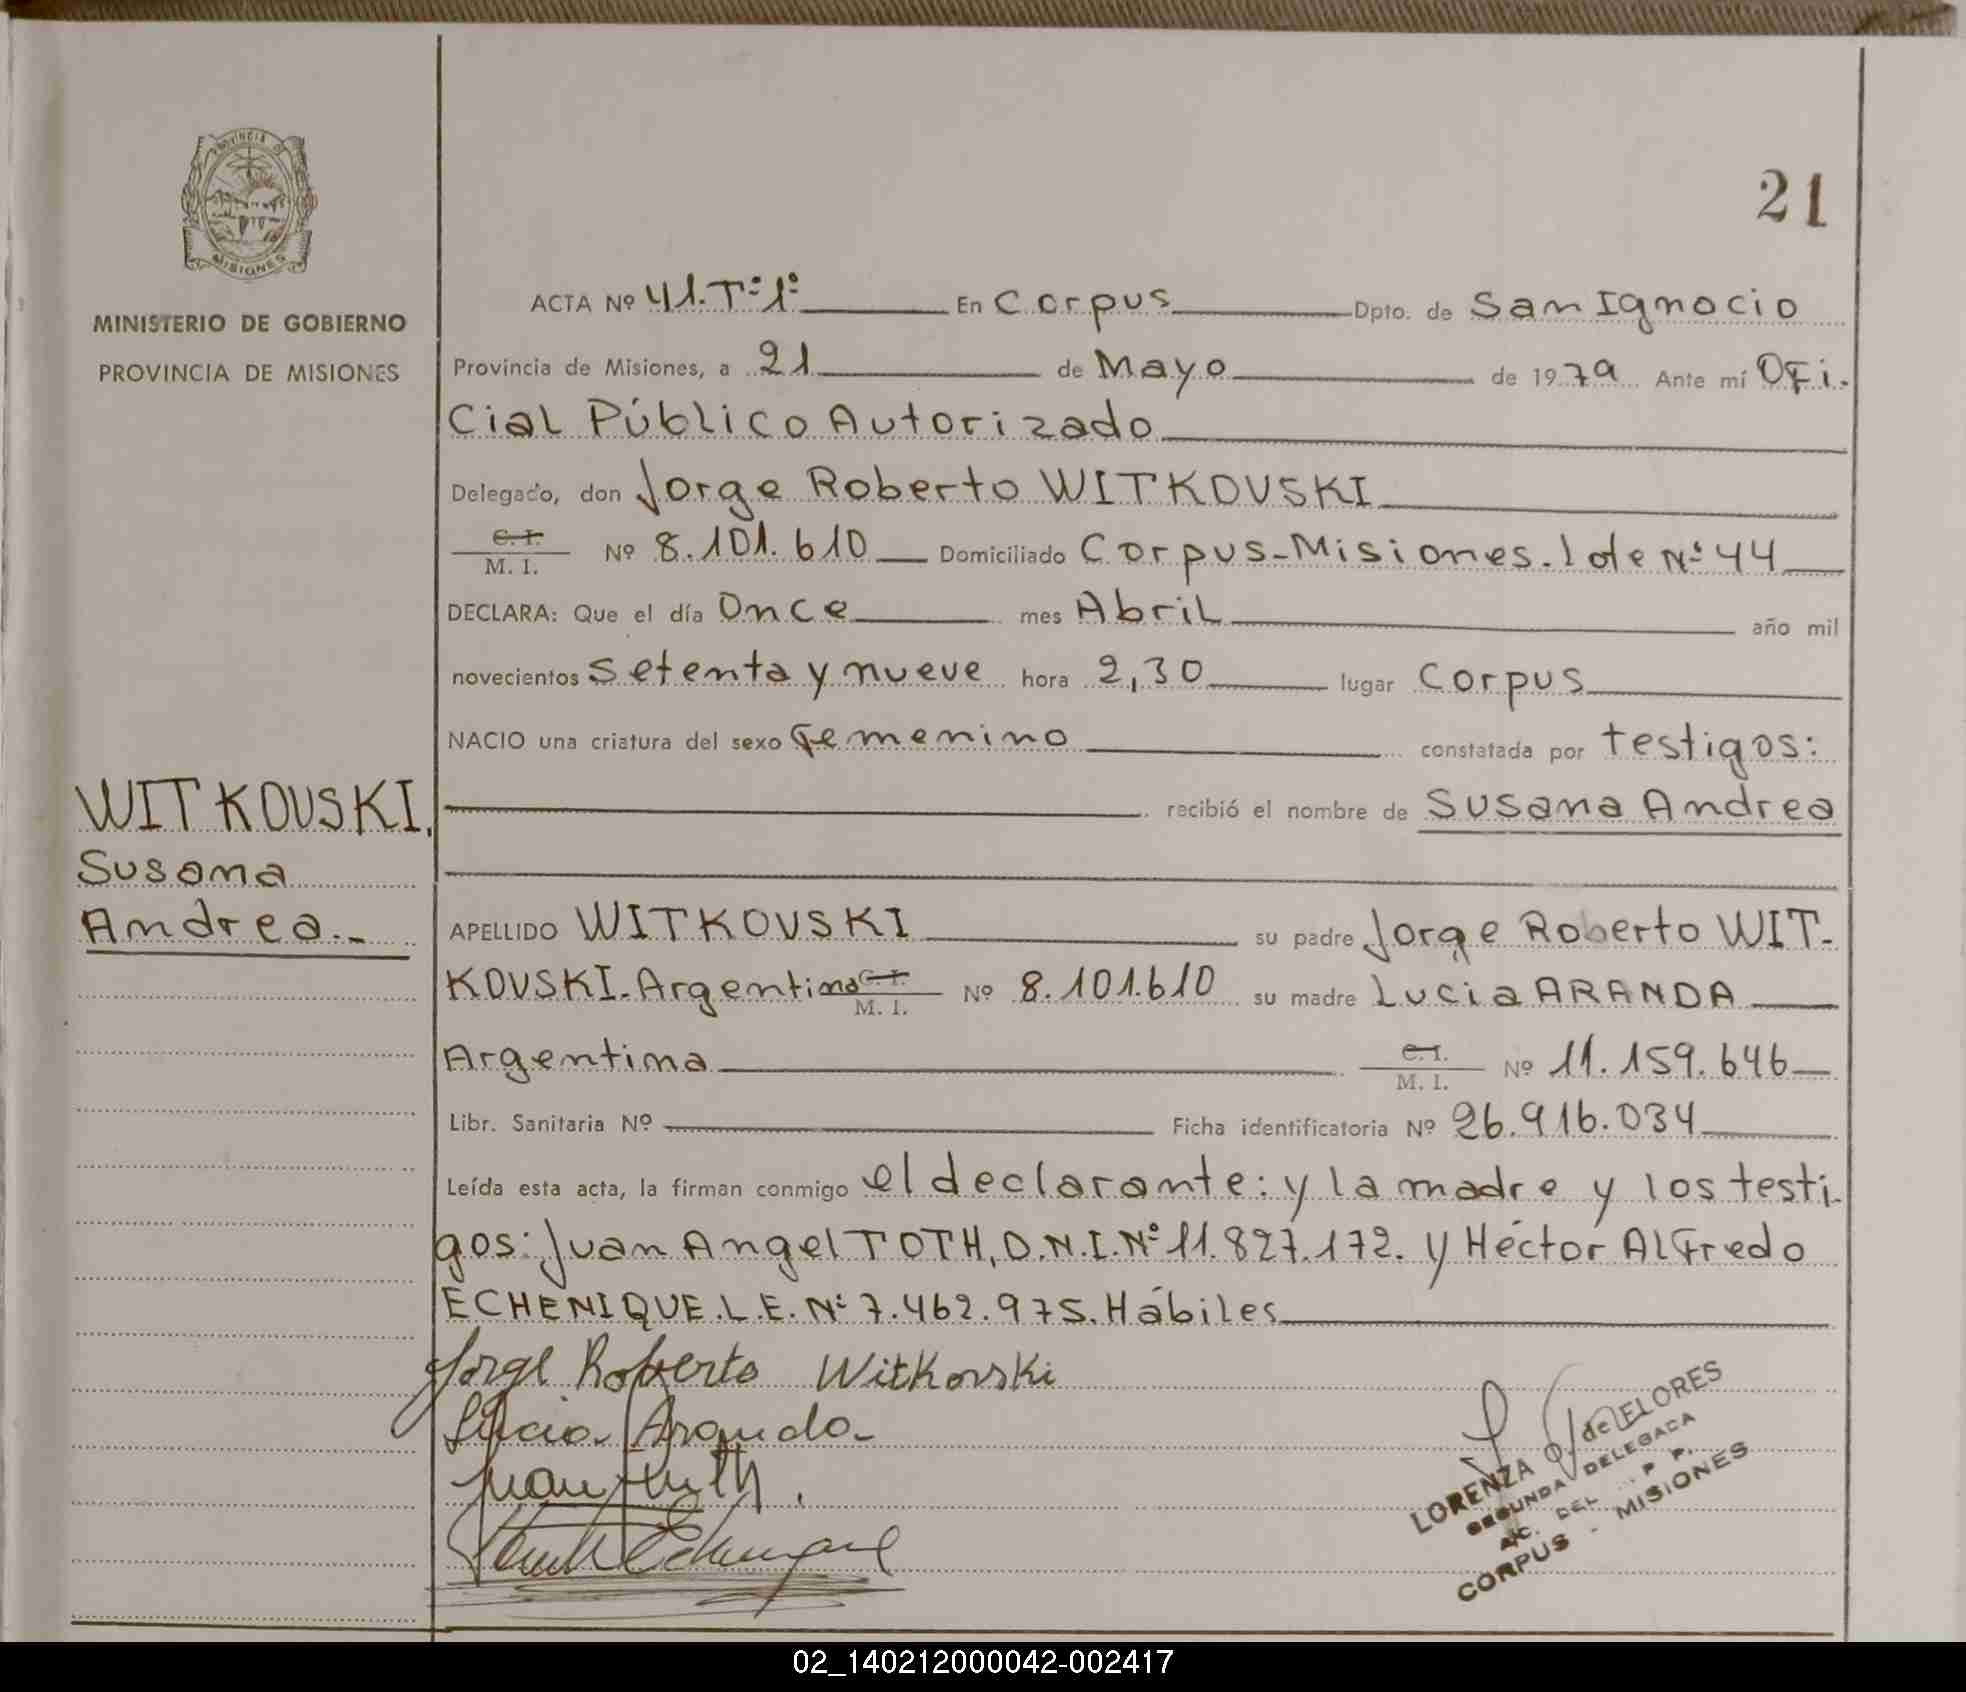 PROVINCIA D
MISIONES
MINISTERIO DE GOBIERNO
PROVINCIA DE MISIONES
21
ACTA Nº 41.Tº1º En Corpus Dpto. de San Ignacio
Provincia de Misiones, a 21 de Mayo de 1979 Ante mí Ofi.
cial Público Autorizado
Delegado, don Jorge Roberto WITKOVSKI
C. I.
M. I. Nº 8.101.610 Domiciliado Corpus-Misiones.lote Nº44
DECLARA: Que el día Once mes Abril año mil
novecientos setenta y nueve hora 2,30 lugar Corpus
NACIO una criatura del sexo Femenino constatada por testigos:
recibió el nombre de Susana Andrea
WITKOVSKI.
Susana
Andrea.-
APELLIDO WITKOVSKI su padre Jorge Roberto WIT-
KOVSKI.Argentino C. I. M. I. Nº 8.101.610 su madre Lucia ARANDA
Argentina C. I. M. I. Nº 11.159.646
Libr. Sanitaria Nº Ficha identificatoria Nº 26.916.034
Leída esta acta, la firman conmigo el declarante: y la madre y los testi-
gos: Juan Angel TOTH, D.N.I.Nº 11.827.172. y Héctor Alfredo
ECHENIQUE.L.E.Nº 7.462.975. Hábiles
Jorge Roberto Witkovski
Lucia Aranda
LORENZA de FLORES
SEGUNDA DELEGADA
A/C. DEL P P.
CORPUS - MISIONES
02_140212000042-002417